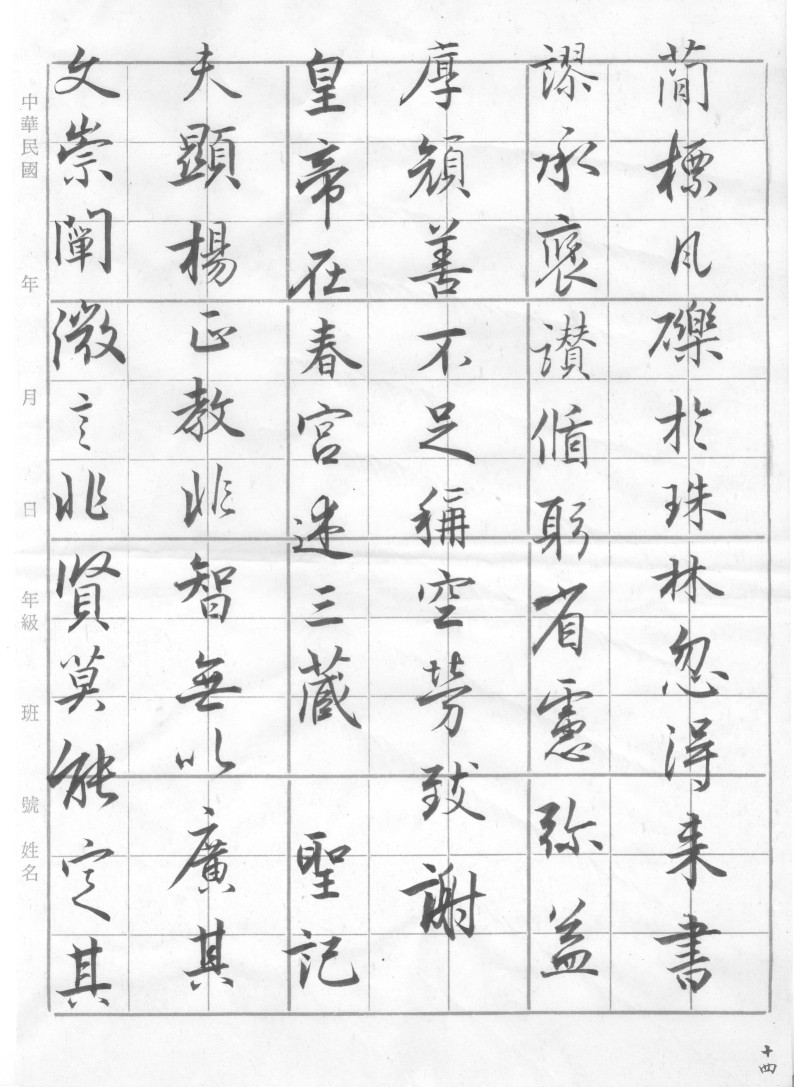 蕳標風礫於珠林忽得来書
謬承褒讚循躬省慮弥益
厚顏善不足稱空勞致謝
皇帝在春宮述三藏 聖記
夫顯楊正教非智無以廣其
文崇闡微言非賢莫能定其
中華民國 年 月 日 年級 班 號 姓名
十四